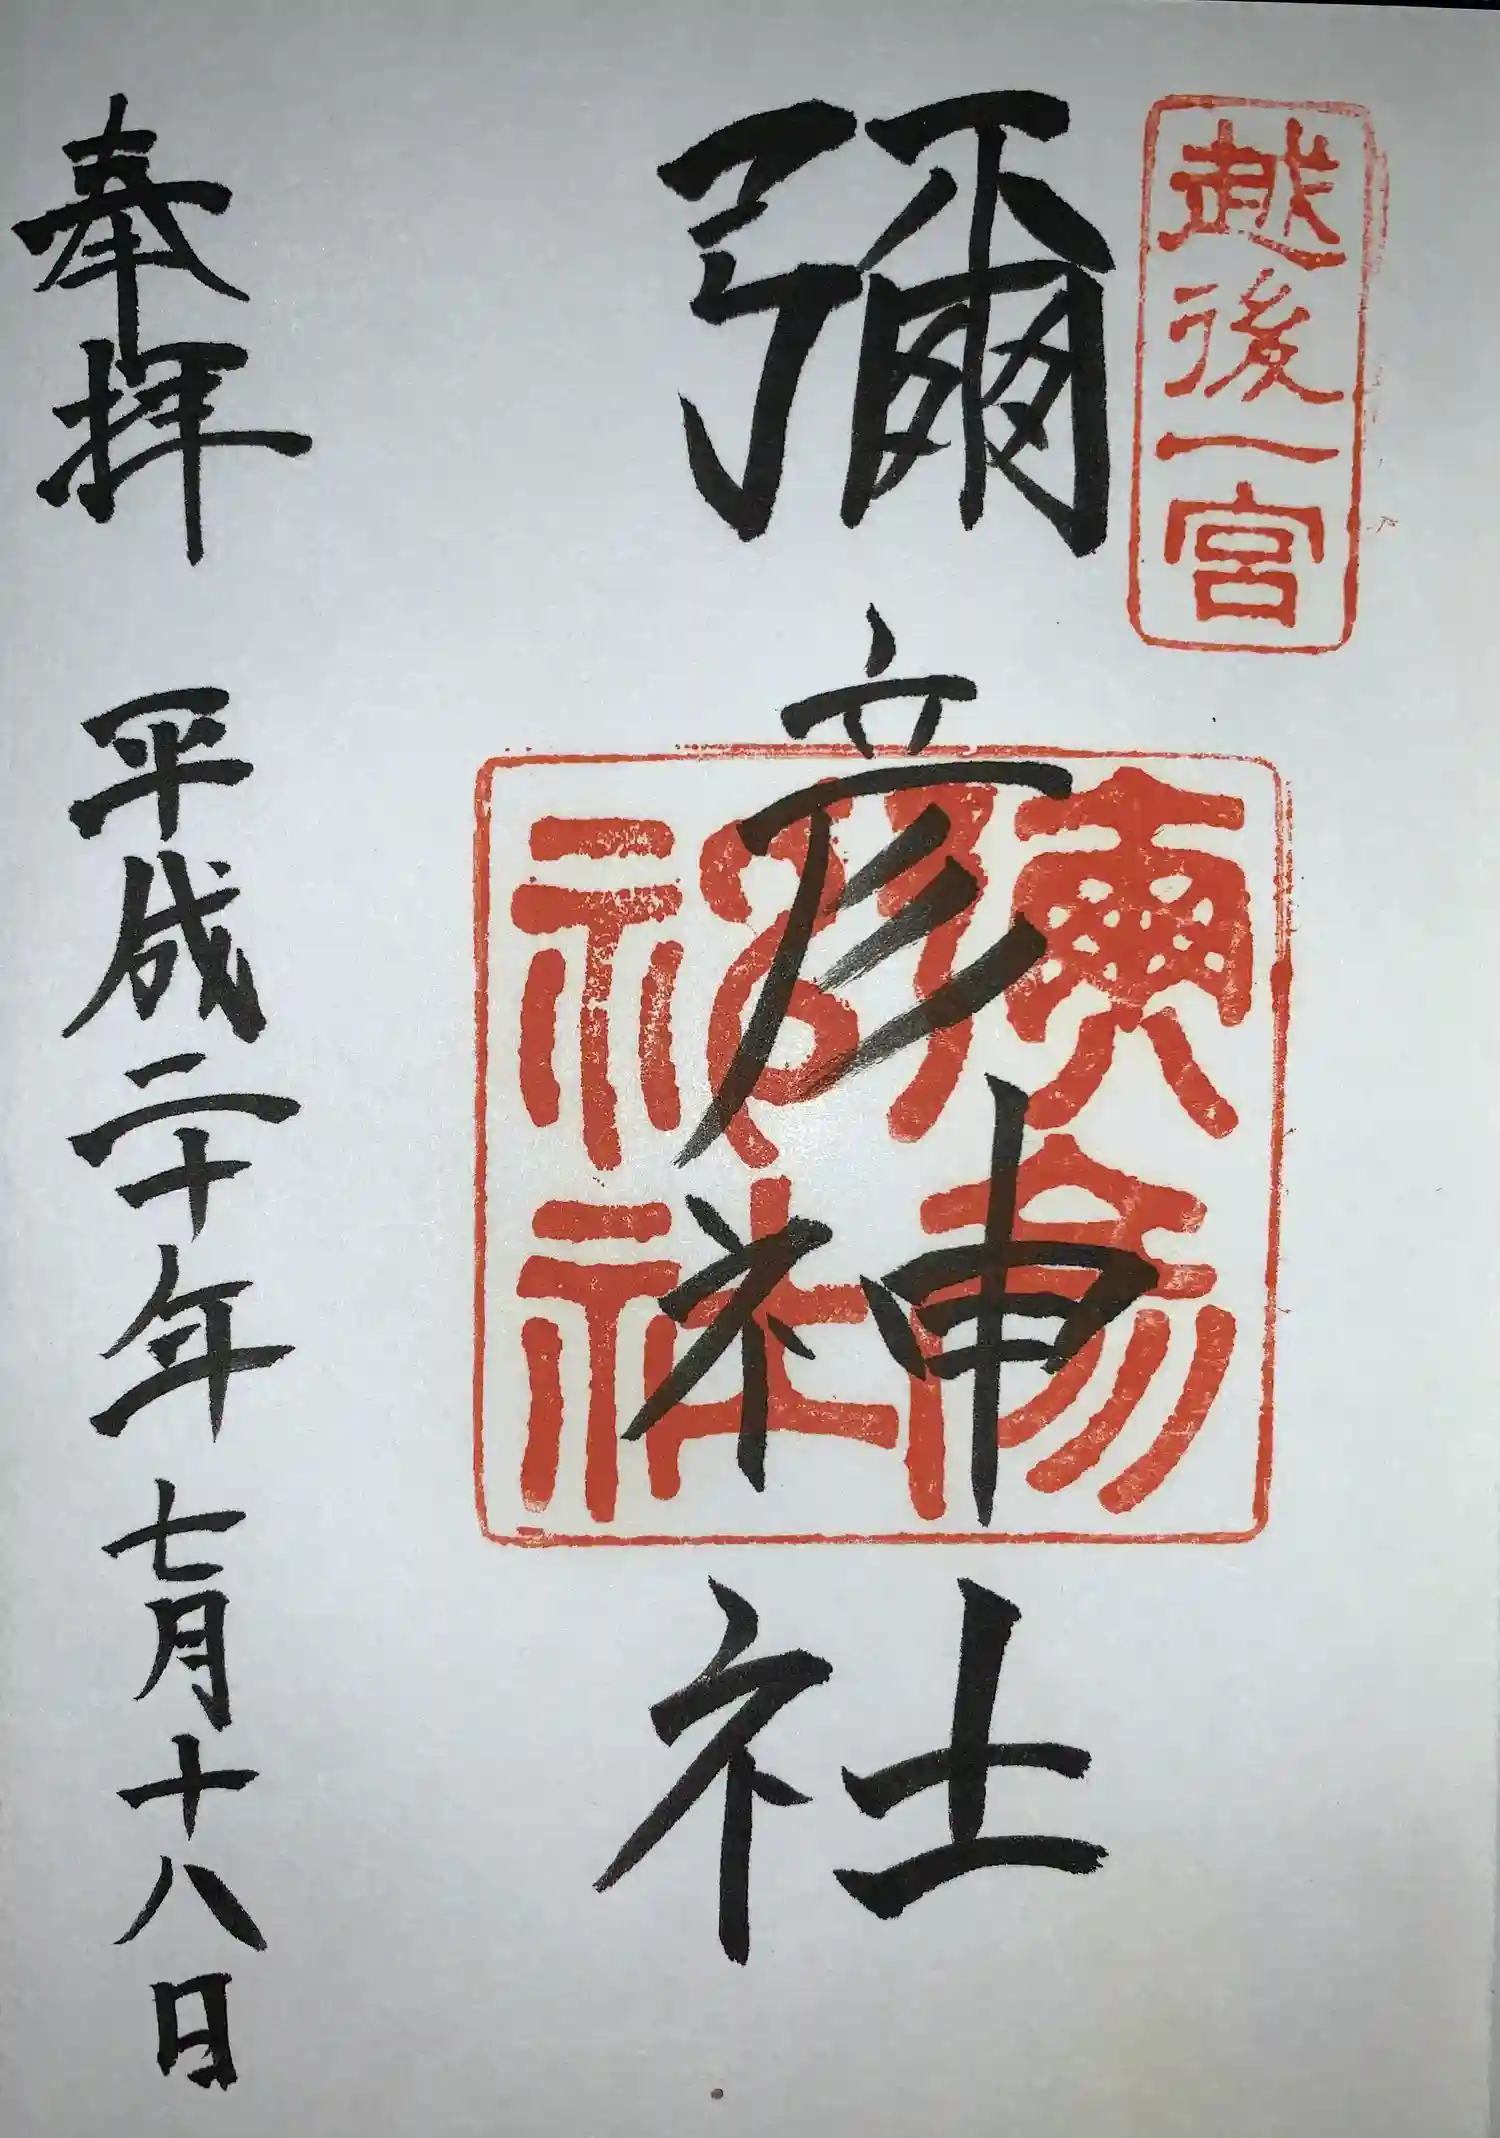 越後一宮
彌彦神社
彌彦神社
奉拝 平成二十年七月十八日